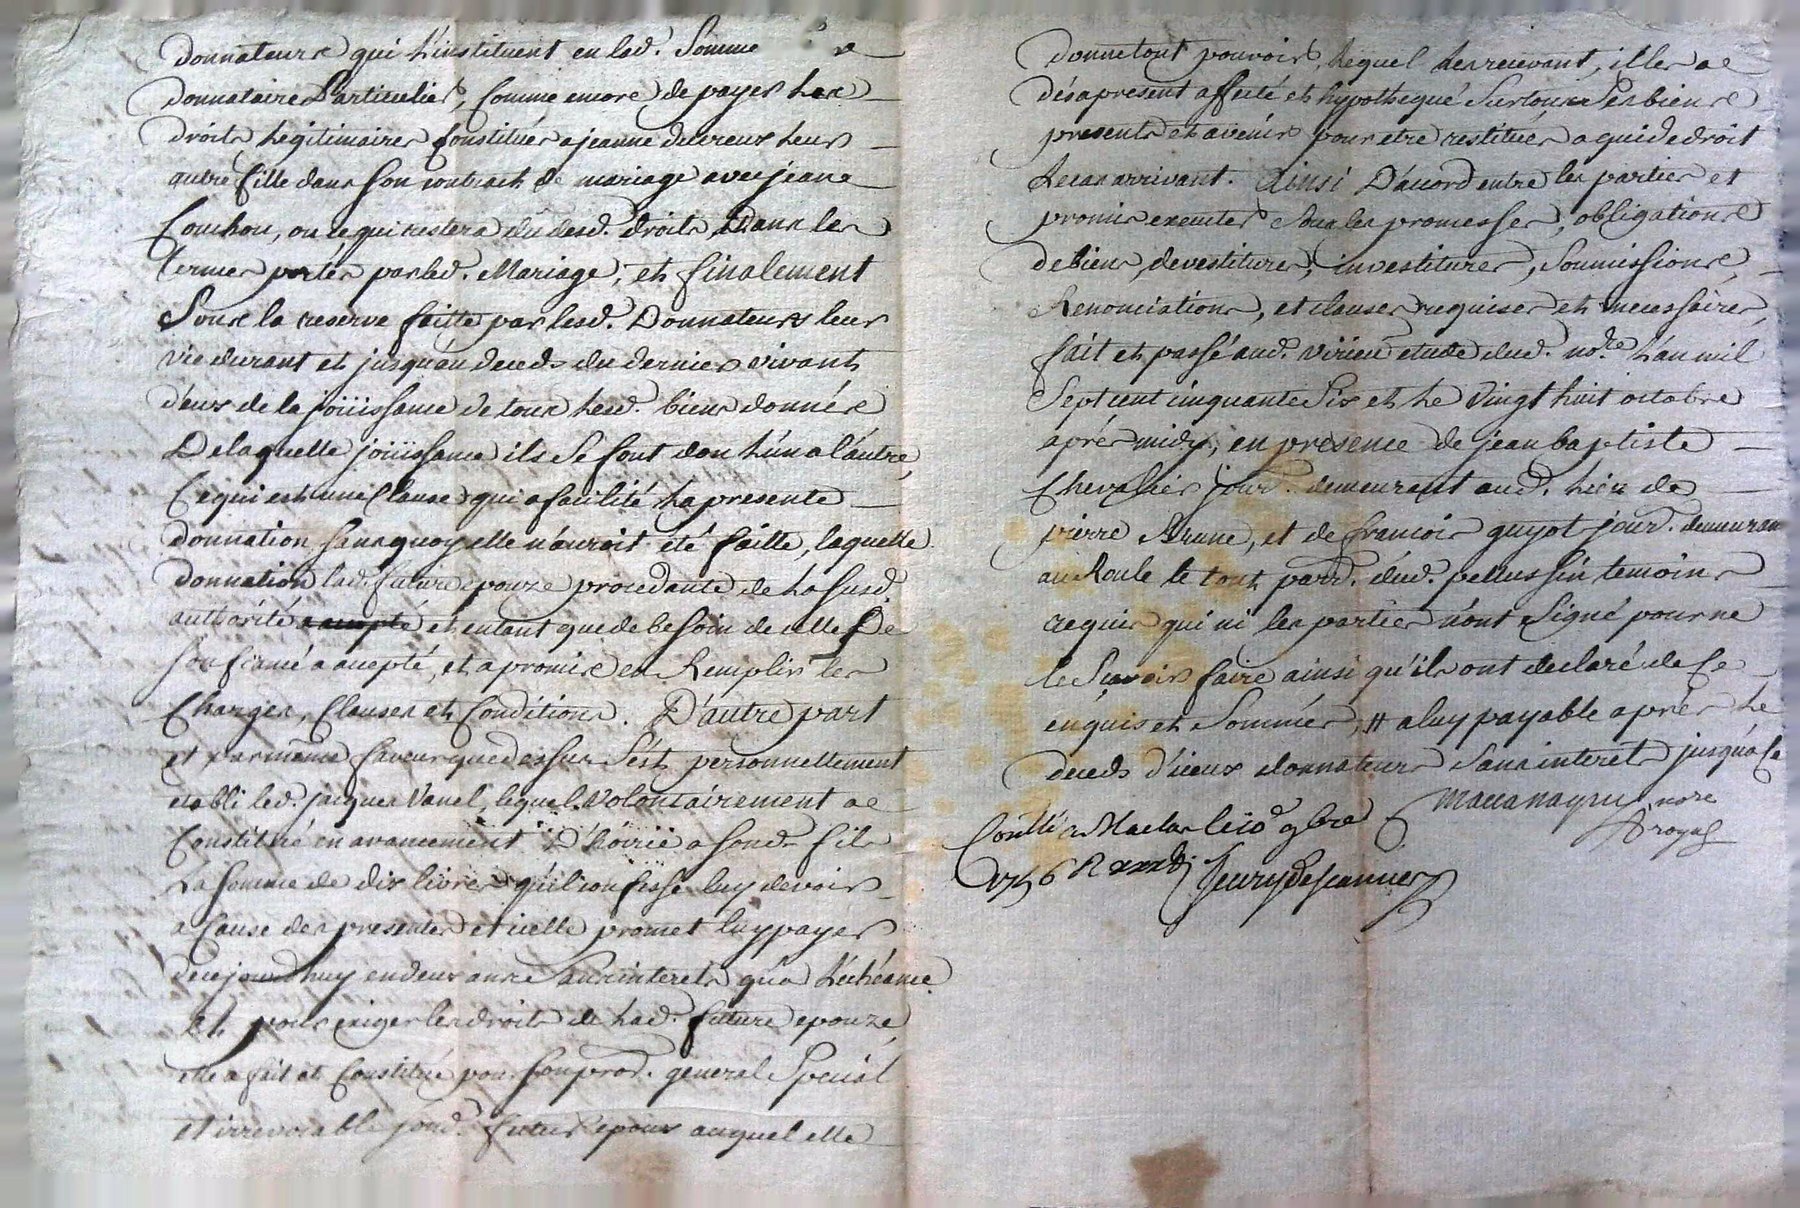 donnateurs qui l'instituent en lad. somme
donnataire Particulier, Comme encore de payer les
droits legitimaires Constitués a jeanne devreux leur
autre fille dans son contract de mariage avec jean
Couchou, ou ce qui restera du desd. droits, Dans les
termes portés par led. Mariage, et finalement
Sous la reserve faitte par lesd. Donnateurs leur
vie durant et jusqu'au deceds du dernier vivant
d'eux de la joüissance de tous lesd. biens donnés
De laquelle joüissance ils se font don l'un a l'autre,
Ce qui est une Clause qui a facilité la presente
donnation sans quoy elle n'auroit été faitte, laquelle
donnation lad. future epouze procedante de la susd.
authorité accepté et entant que de besoin de celle De
son fiancé a accepté, et a promis en Remplir les
Charges, Clauses et Conditions. D'autre part
et par même faveur que dessus s'est personnellement
etabli led. jacques Vanel, lequel volontairement a
Constitué en avancement D'hoirie a sond. fils
La somme de dix livres qu'il confesse luy devoir
a Cause des presentes et icelle promet luy payer
de ce jourd'huy en deux ans sans interets qu'a l'échéance
Et pour exiger les droits de lad. future epouze,
elle a fait et Constitué pour son prod. general Special
et irrevocable sond. futur epoux auquel elle
donne tout pouvoir, lequel les recevant, illes a
dés apresent affecté et hypothequé sur tous ses biens
presents et avenir pour etre restitués a qui de droit
le cas arrivant. Ainsi D'accord entre les parties et
promis executer sous les promesses, obligations
de biens, devestitures, investitures, Soumissions,
Renonciations, et clauses requises et necessaires,
fait et passé aud. virieu etude dud. nore. l'an mil
Sept cent cinquante six et le vingt huit octobre
aprés midy, en presence de jean baptiste
Chevalier jour. demeurant aud. lieu de
pierre Brune, et de francois guyot jour. demeurant
au Roule le tout parr. dud. pellussin temoins
requis qui ni les parties n'ont signé pour ne
le scavoir faire ainsi qu'ils ont declaré de ce
enquis et Sommés, # a luy payable aprés le
deceds d'iceux donnateurs sans interets jusqu'a ce
nore
royal
Conllé a Maclas le 10e 9bre
1756 R